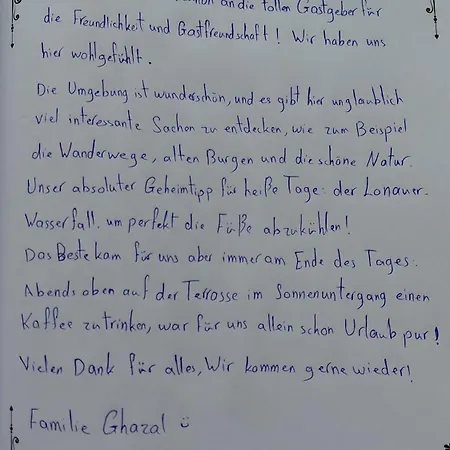 an die tollen Gastgeber für
die Freundlichkeit und Gastfreundschaft! Wir haben uns
hier wohlgefühlt.
Die Umgebung ist wunderschön, und es gibt hier unglaublich
viel interessante Sachen zu entdecken, wie zum Beispiel
die Wanderwege, alten Burgen und die schöne Natur.
Unser absoluter Geheimtipp für heiße Tage: der Lonauer-
Wasserfall. um perfekt die Füße abzukühlen!
Das Beste kam für uns aber immer am Ende des Tages:
Abends oben auf der Terrosse im Sonnenuntergang einen
Kaffee zu trinken, war für uns allein schon Urlaub pur!
Vielen Dank für alles, Wir kommen gerne wieder!
Familie Ghazal :)